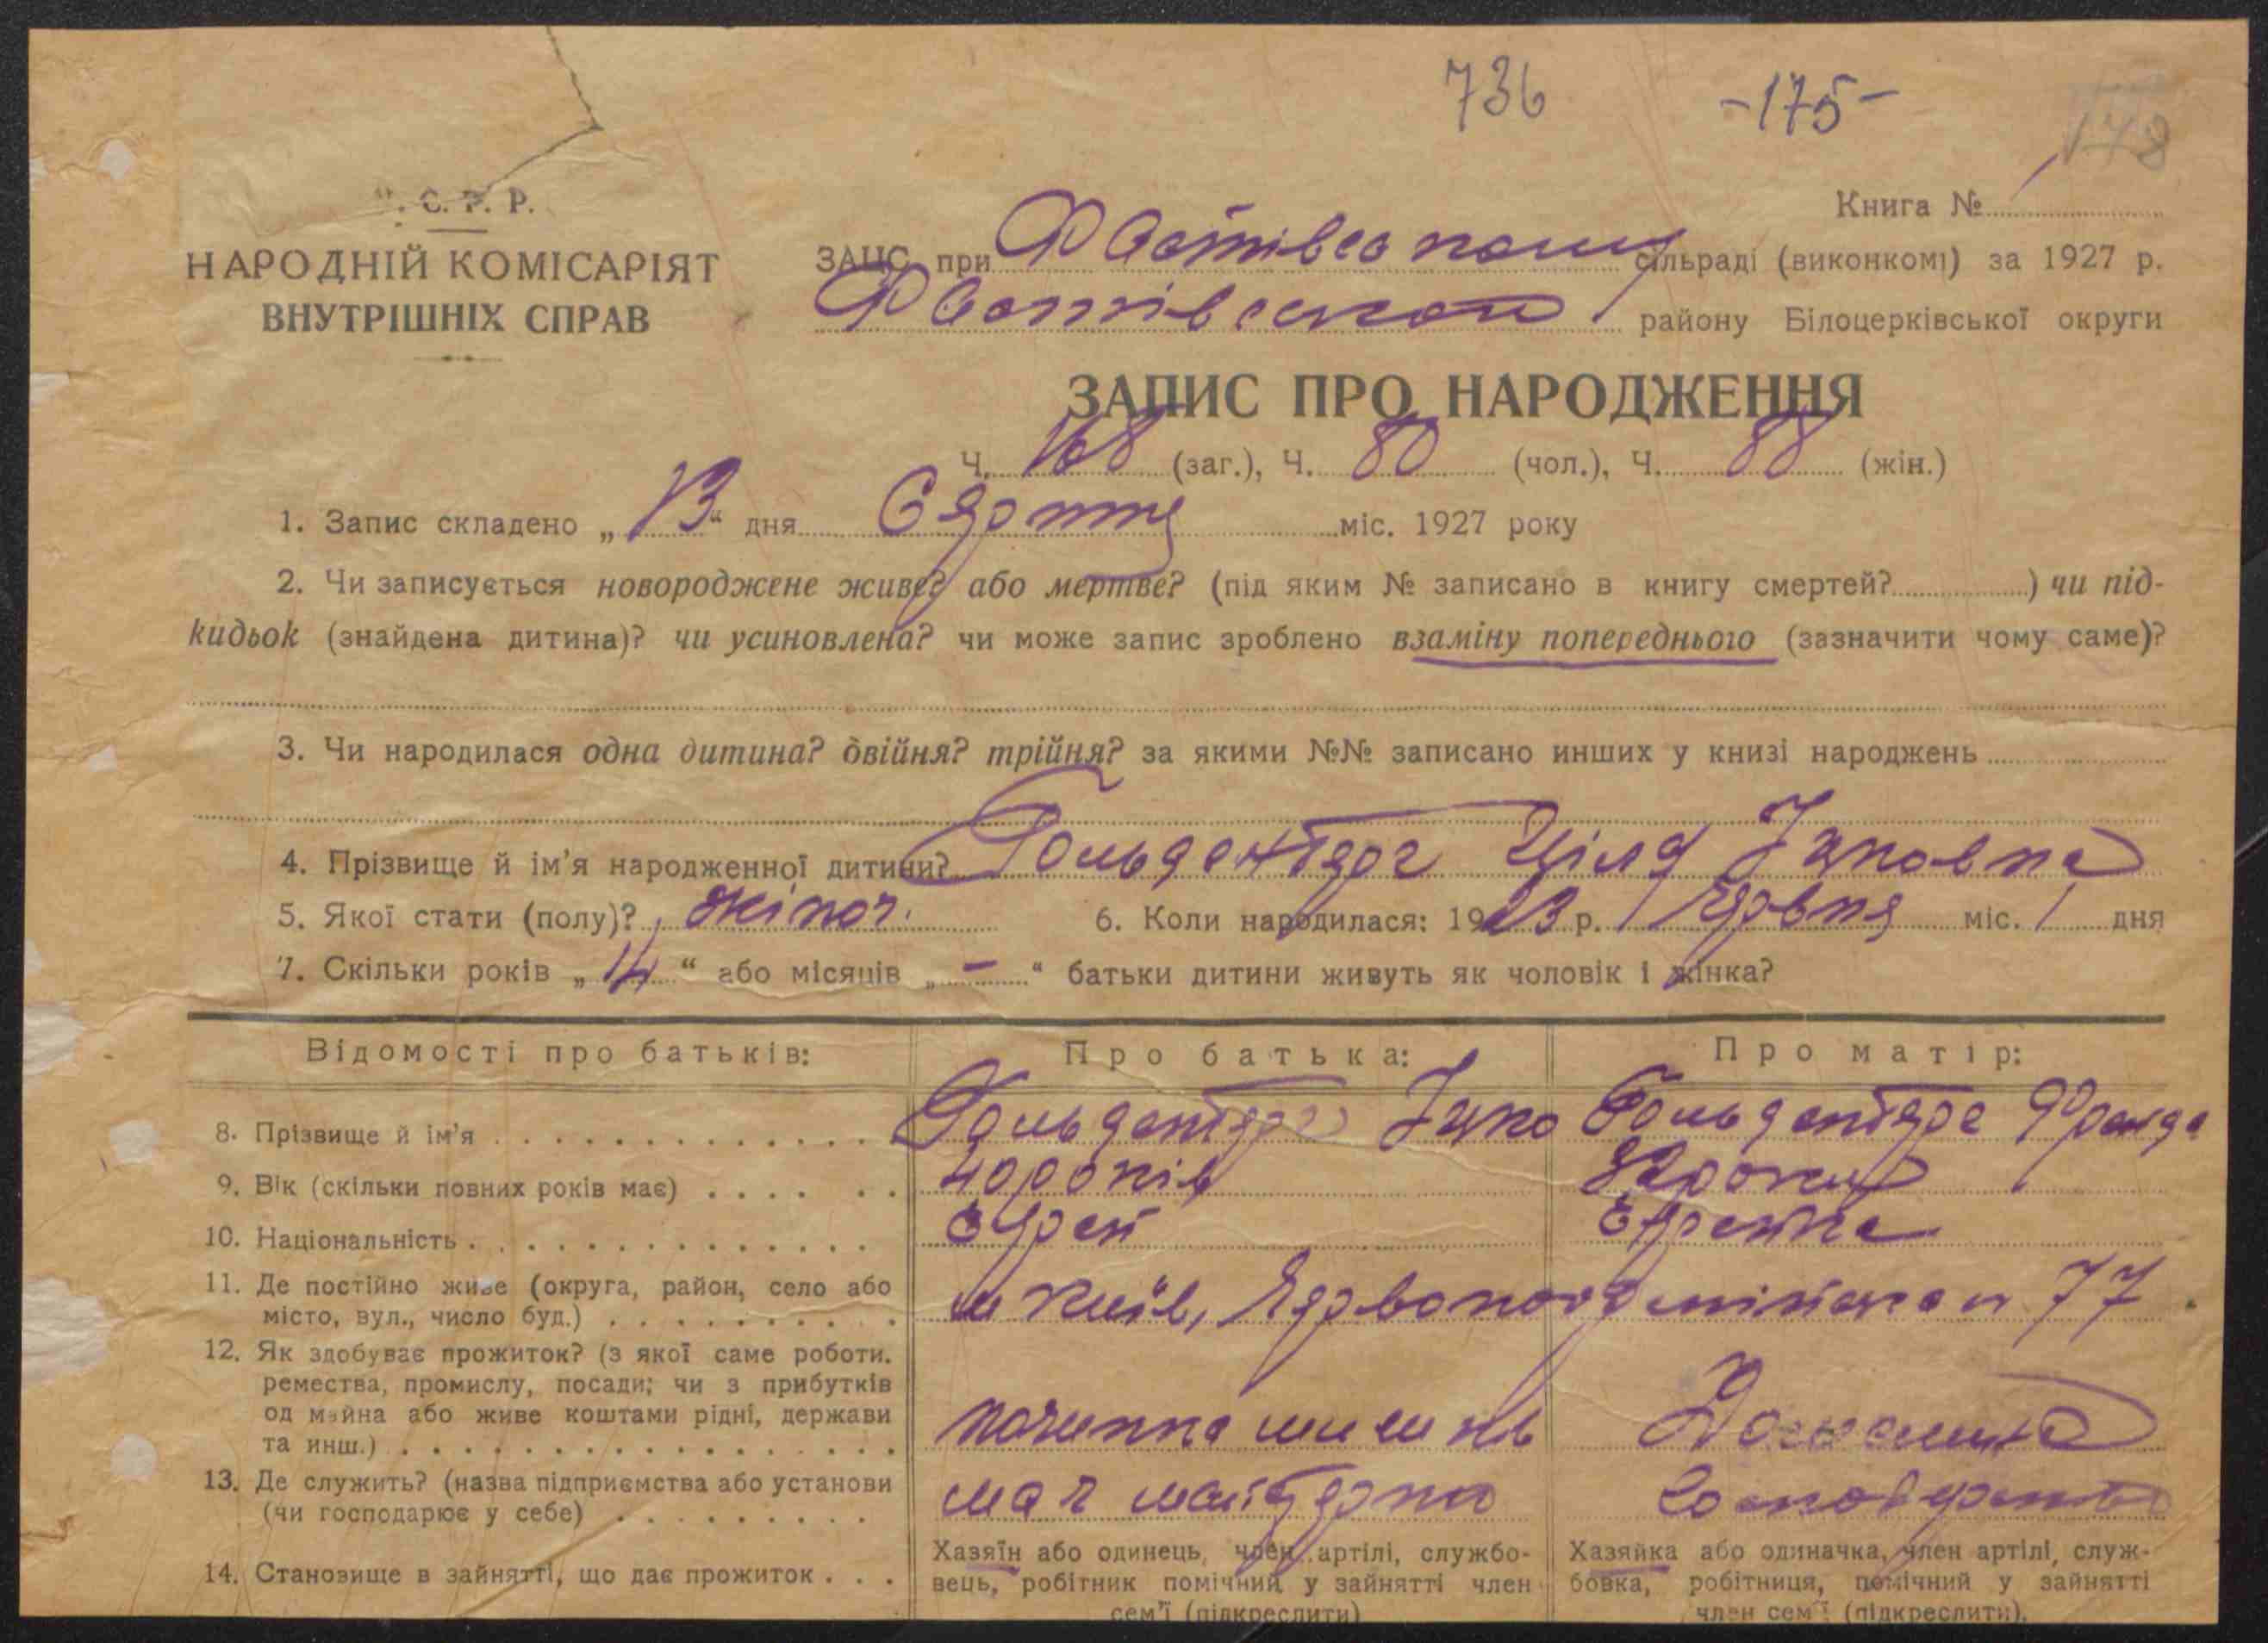 736 -175- 178
У. С. Р. Р.
НАРОДНІЙ КОМІСАРІЯТ
ВНУТРІШНІХ СПРАВ
Книга №
ЗАЦС при Фастівському сільраді (виконкомі) за 1927 р.
Фастівського району Білоцерківської округи
ЗАПИС ПРО НАРОДЖЕННЯ
Ч. 168 (заг.), Ч. 80 (чол.), Ч. 88 (жін.)
1. Запис складено „13“ дня Серпня міс. 1927 року
2. Чи записується новороджене живе? або мертве? (під яким № записано в книгу смертей? ) чи під-
кидьок (знайдена дитина)? чи усиновлена? чи може запис зроблено взаміну попереднього (зазначити чому саме)?
3. Чи народилася одна дитина? двійня? трійня? за якими №№ записано инших у книзі народжень
4. Прізвище й ім'я народженної дитини? Гольденберг Ціля Іцковна
5. Якої стати (полу)? жіноч. 6. Коли народилася: 1923 р. Червня міс. 1 дня
7. Скільки років „14“ або місяців „-“ батьки дитини живуть як чоловік і жінка?
Відомості про батьків: Про батька: Про матір:
8. Прізвище й ім'я Гольденберг Іцко Гольденберг Фрейда
9. Вік (скільки повних років має) 40 років роки
10. Національність Єврей Єврейка
11. Де постійно живе (округа, район, село або
місто, вул., число буд.) м Київ, 77
12. Як здобуває прожиток? (з якої саме роботи.
ремества, промислу, посади; чи з прибутків
од майна або живе коштами рідні, держави
та инш.) починка машинь Домашнє
13. Де служить? (назва підприємства або установи
(чи господарює у себе) має майстерню господарство
14. Становище в зайнятті, що дає прожиток
Хазяїн або одинець, член артілі, службо-
вець, робітник помічний у зайнятті член
сем'ї (підкреслити)
Хазяйка або одиначка, член артілі, служ-
бовка, робітниця, помічний у зайнятті
член сем'ї (підкреслити).